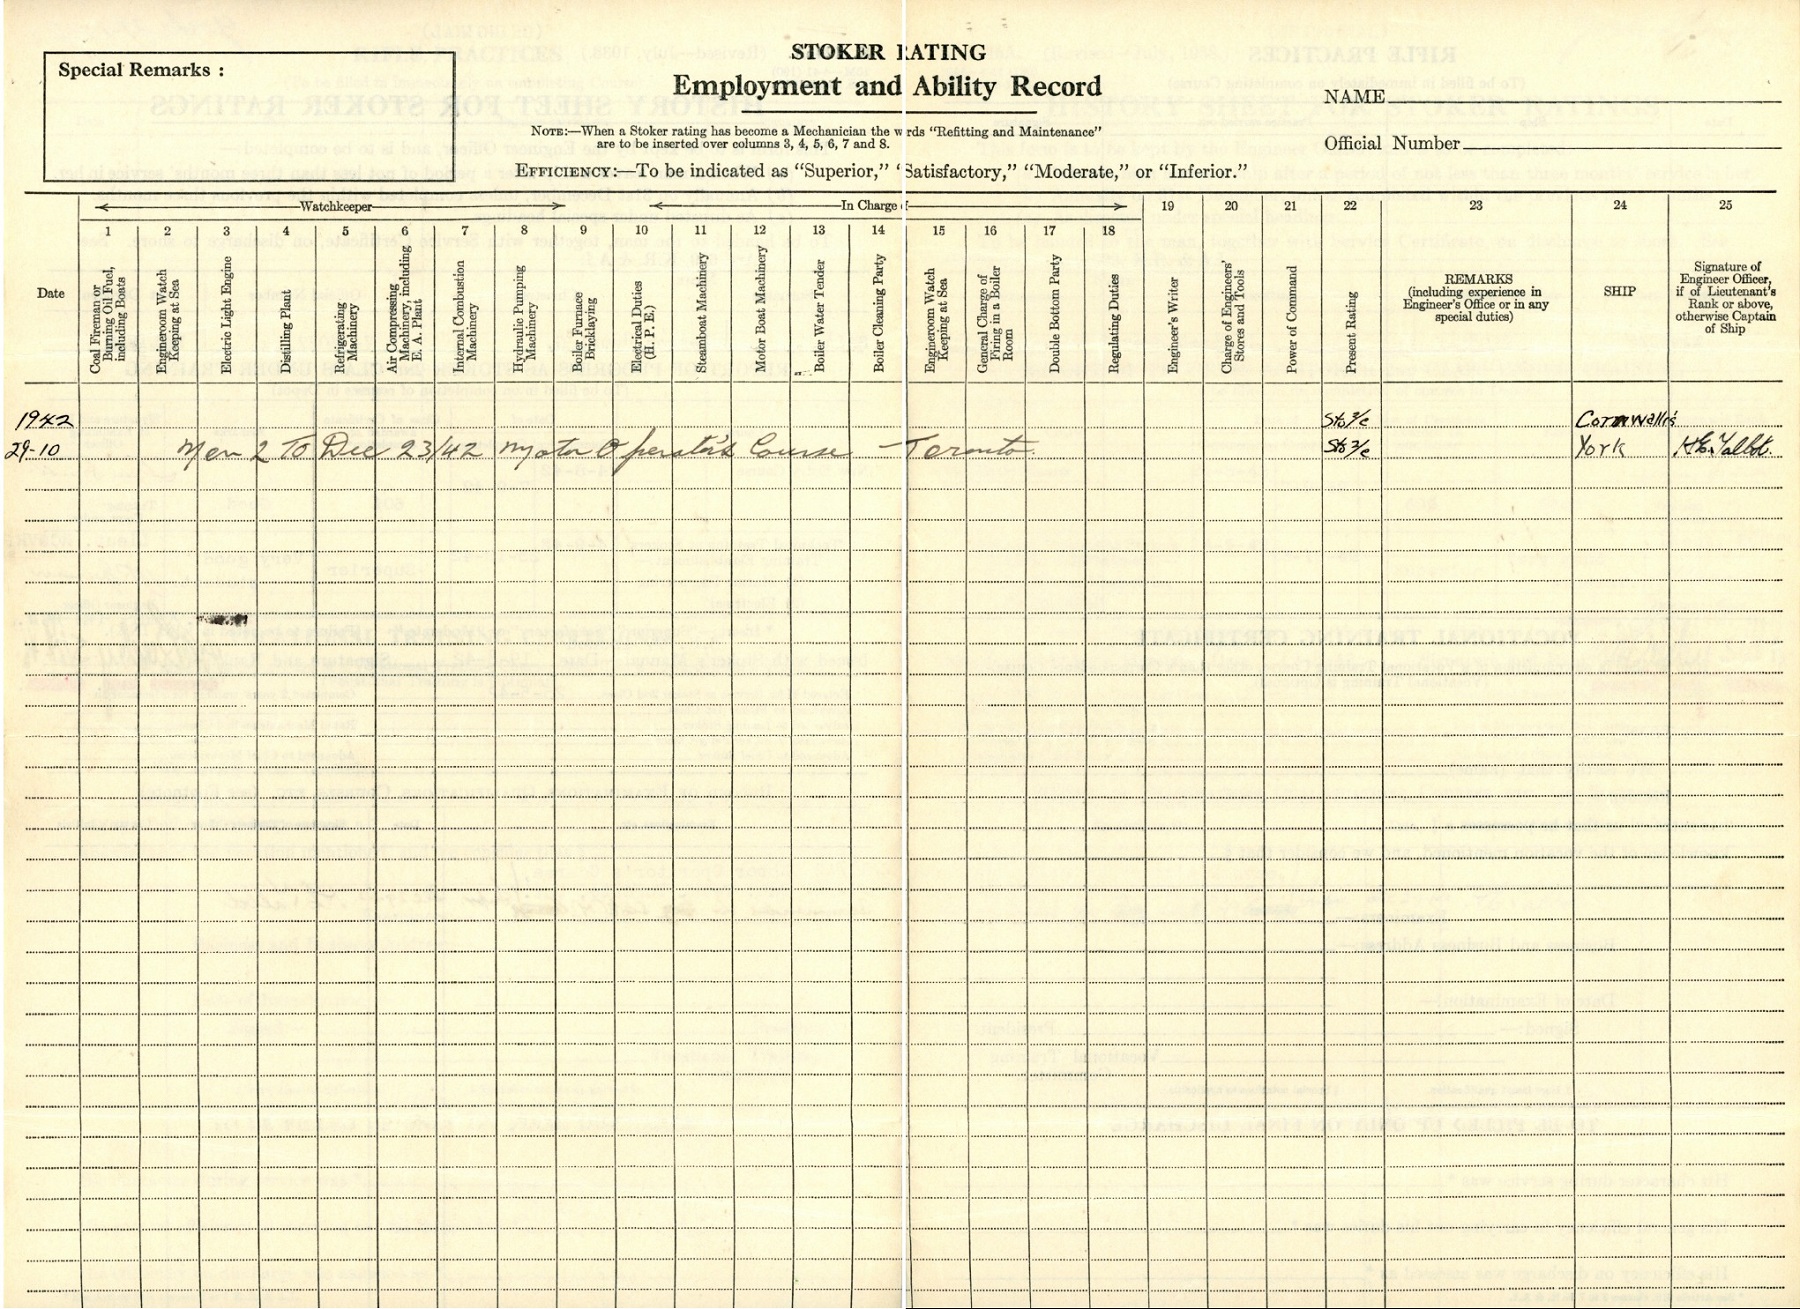 Special Remarks :
STOKER RATING
Employment and Ability Record
NOTE:—When a Stoker rating has become a Mechanician the w rds "Refitting and Maintenance"
are to be inserted over columns 3, 4, 5, 6, 7 and 8.
EFFICIENCY:—To be indicated as "Superior," "Satisfactory," "Moderate," or "Inferior."
NAME
Official Number
Watchkeeper
In Charge
1 2 3 4 5 6 7 8 9 10 11 12 13 14 15 16 17 18 19 20 21 22 23 24 25
Date
Coal Fireman or Burning Oil Fuel, including Boats
Engineroom Watch Keeping at Sea
Electric Light Engine
Distilling Plant
Refrigerating Machinery
Air Compressing Machinery, including E. A. Plant
Internal Combustion Machinery
Hydraulic Pumping Machinery
Boiler Furnace Bricklaying
Electrical Duties (H. P. E.)
Steamboat Machinery
Motor Boat Machinery
Boiler Water Tender
Boiler Cleaning Party
Engineroom Watch Keeping at Sea
General Charge of Firing in a Boiler Room
Double Bottom Party
Regulating Duties
Engineer's Writer
Charge of Engineers' Stores and Tools
Power of Command
Present Rating
REMARKS
(including experience in
Engineer's Office or in any
special duties)
SHIP
Signature of
Engineer Officer,
if of Lieutenant's
Rank or above,
otherwise Captain
of Ship
1942 Sto 3/c Cornwallis
29-10 2 To Dec 23/42 Motor Operator's Course - Toronto. Sto 3/c York H.E. Talbot.